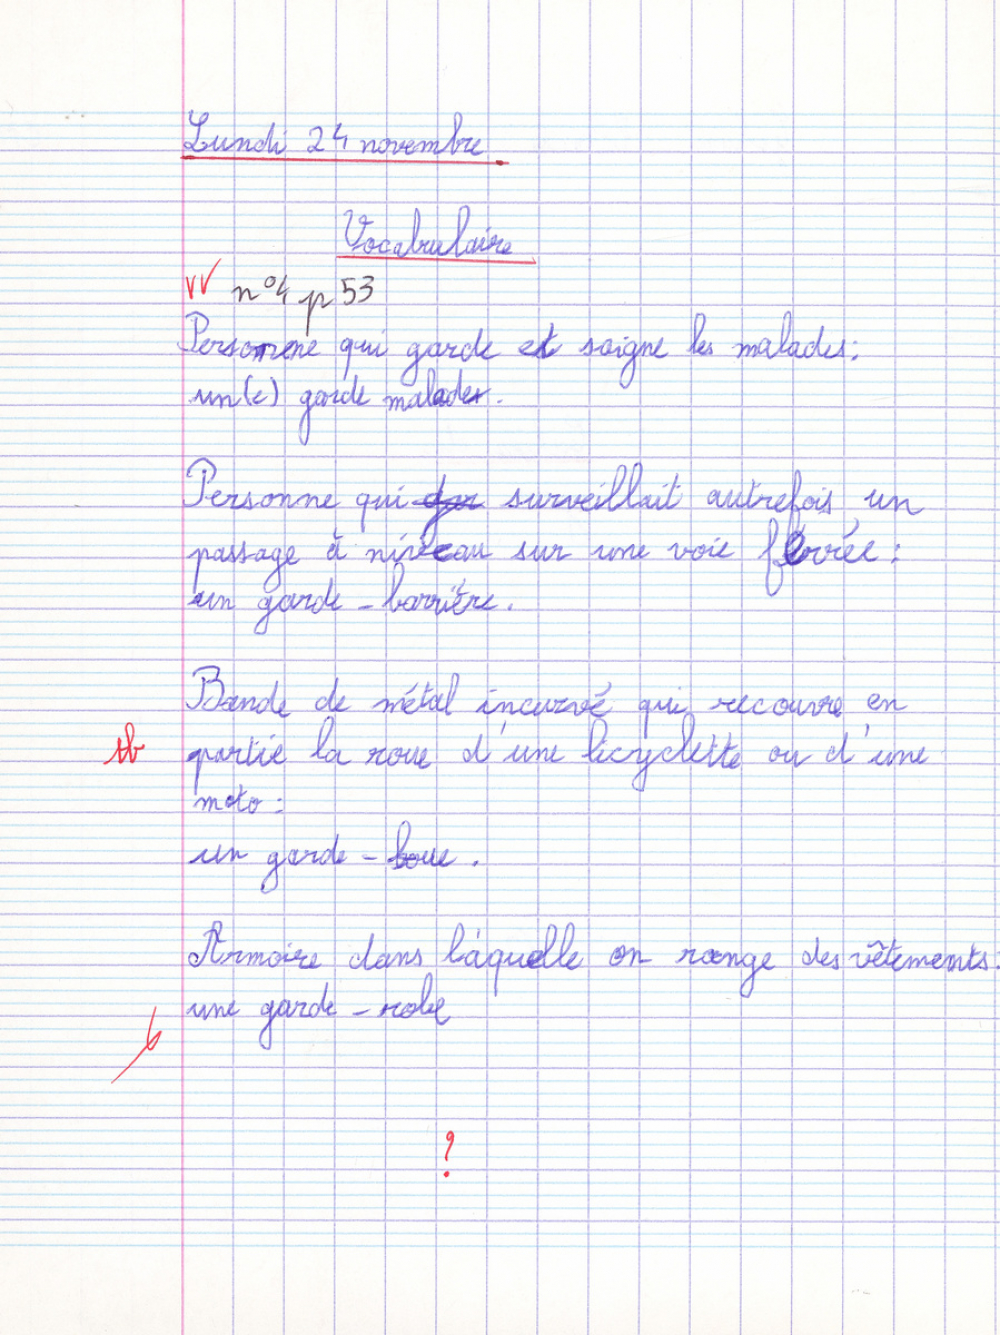 Lundi 24 novembre
Vocabulaire
n°4 p 53
Personne qui garde et soigne les malades :
un(e) garde malades.
Personne qui surveillait autrefois un
passage à niveau sur une voie ferrée :
un garde-barrière.
Bande de métal incurvé qui recouvre en
tb
partie la roue d'une bicyclette ou d'une
moto :
un garde-boue.
Armoire dans làquelle on range des vêtements :
une garde-robe
?